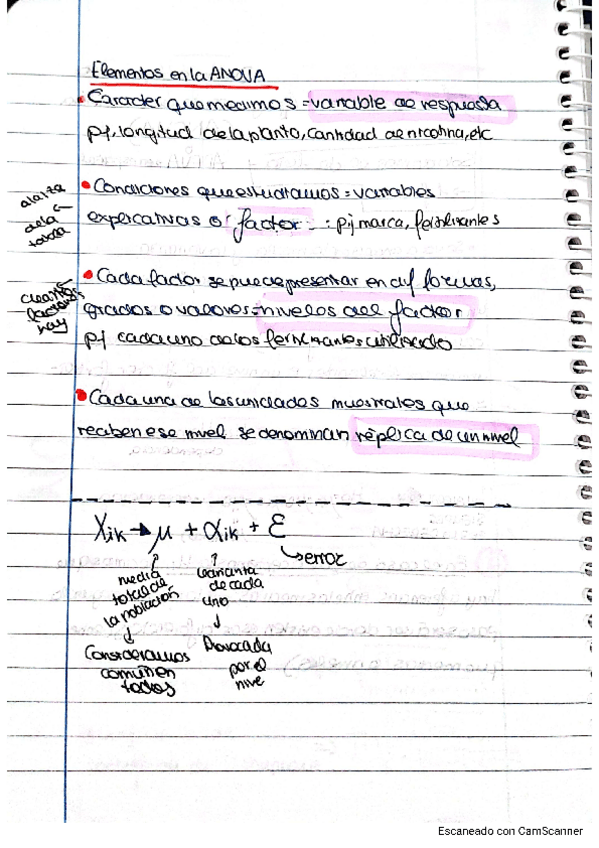 Elementos en la ANOVA
• Caracter que medimos = variable de respuesta
pj, longitud de la planta, cantidad de nicotina, etc
• Condiciones que estudiamos = variables
explicativas o factor : pj marca, fertilizantes
• Cada factor se puede presentar en dif formas,
cuantos
factores
hay
grados o valores = niveles del factor
pj cada uno de los fertilizantes utilizado
• Cada una de las unidades muestrales que
reciben ese nivel se denominan réplica de un nivel
Xik → μ + αik + ε
error
media
total de
la población
varianta
de cada
uno
Consideramos
comun en
todos
Provocada
por el
nive
Escaneado con CamScanner